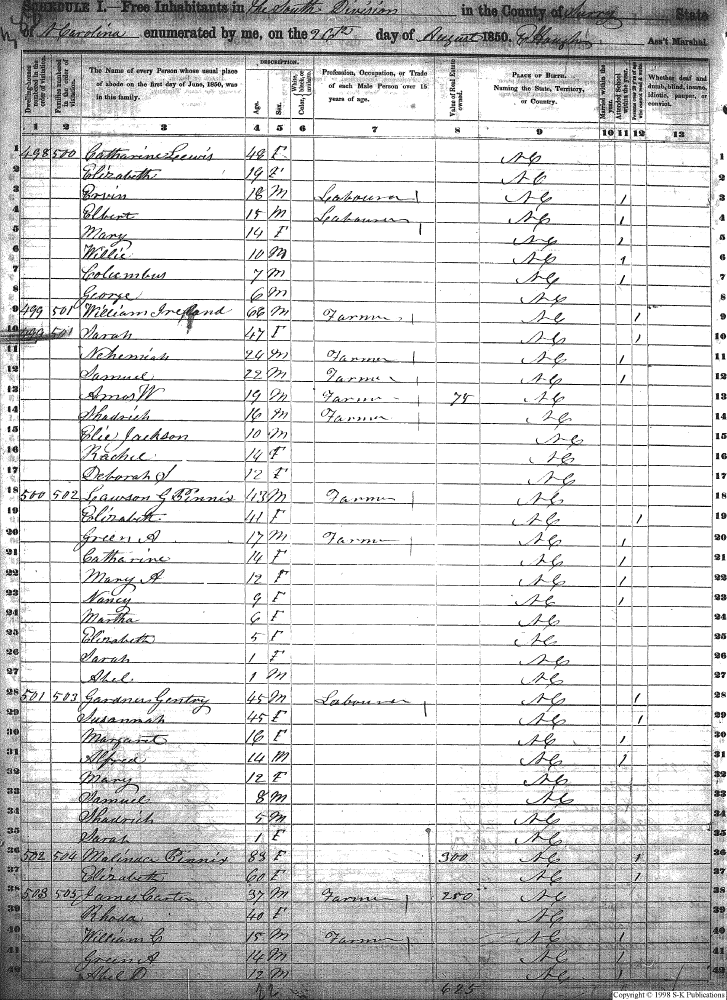 SCHEDULE I.—Free Inhabitants in The South Division in the County of Surry State
of N Carolina enumerated by me, on the 26th day of August 1850. Ass't Marshal.
Dwelling-houses numbered in the order of visitation.
Families numbered in the order of visitation.
The Name of every Person whose usual place of abode on the first day of June, 1850, was in this family.
DESCRIPTION.
Age.
Sex.
Color, White, black, or mulatto.
Profession, Occupation, or Trade of each Male Person over 15 years of age.
Value of Real Estate owned.
PLACE OF BIRTH. Naming the State, Territory, or Country.
Married within the year.
Attended School within the year.
Whether deaf and dumb, blind, insane, idiotic, pauper, or convict.
1 2 3 4 5 6 7 8 9 10 11 12 13
1 498 500 Catharine Lewis 48 F NC 1
2 Elizabeth 19 F NC 2
3 Ervin 18 M Labourer NC 1 3
4 Elbert 15 M Labourer NC 1 4
5 Mary 14 F NC 1 5
6 Willie 10 M NC 1 6
7 Columbus 7 M NC 1 7
8 George 6 M NC 8
9 499 501 William Ireland 68 M Farmer NC 1 9
10 499 501 Sarah 47 F NC 1 10
11 Nehemiah 24 M Farmer NC 1 11
12 Samuel 22 M Farmer NC 1 12
13 Amos W 19 M Farmer 75 NC 13
14 Shadrich 16 M Farmer NC 14
15 Elie Jackson 10 M NC 15
16 Rachel 14 F NC 16
17 Deborah S 12 F NC 17
18 500 502 Lawson G Pinnix 43 M Farmer NC 18
19 Elizabeth 41 F NC 1 19
20 Green A 17 M Farmer NC 1 20
21 Catharine 14 F NC 1 21
22 Mary A 12 F NC 1 22
23 Nancy 9 F NC 1 23
24 Martha 6 F NC 24
25 Elizabeth 5 F NC 25
26 Sarah 1 F NC 26
27 Abel 1 M NC 27
28 501 503 Gardner Gentry 45 M Labourer NC 1 28
29 Susannah 45 F NC 1 29
30 Margaret 16 F NC 1 30
31 Alfred 14 M NC 1 31
32 Mary 12 F NC 32
33 Samuel 8 M NC 33
34 Shadrich 5 M NC 34
35 Sarah 1 F NC 35
36 502 504 Malinda Pinnix 83 F 300 NC 1 36
37 Elizabeth 60 F NC 1 37
38 503 505 James Carter 37 M Farmer 250 NC 38
39 Rhoda 40 F NC 39
40 William C 15 M Farmer NC 1 40
41 Green A 14 M NC 1 41
42 Abel D 12 M NC 1 42
22 625
Copyright © 1998 S-K Publications